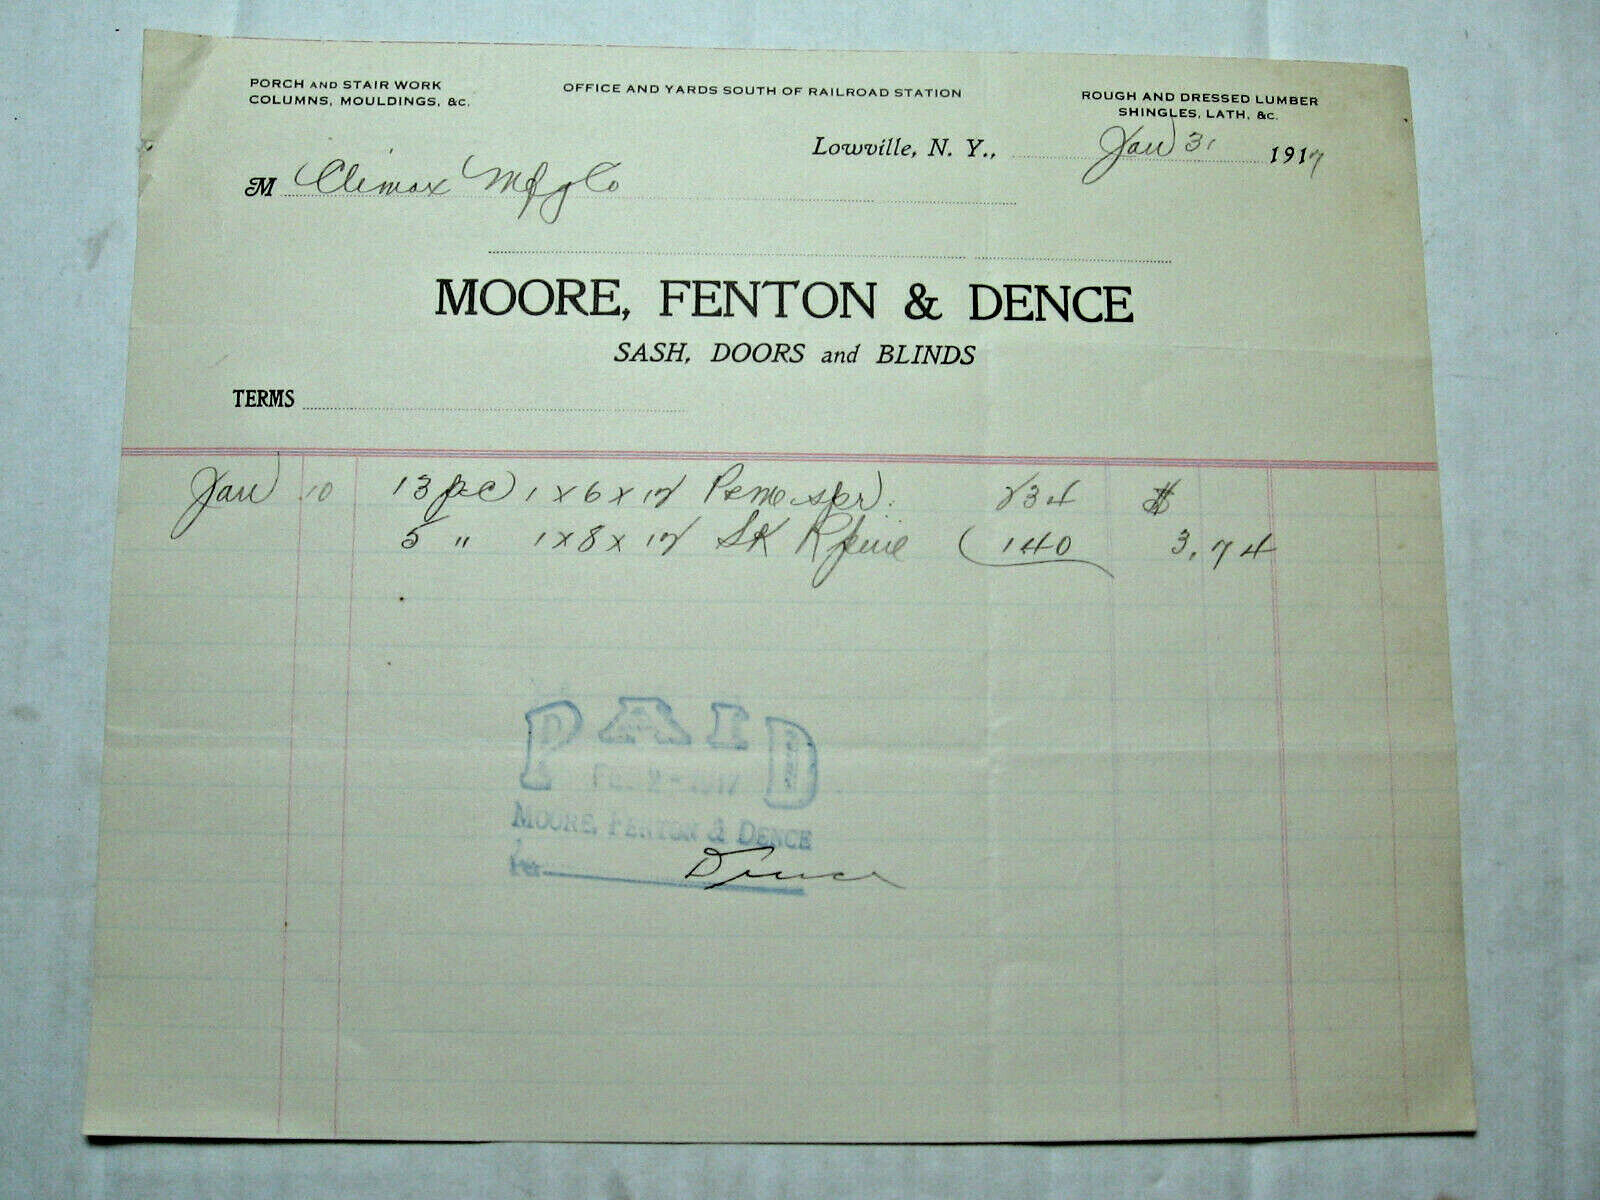 PORCH AND STAIR WORK
COLUMNS, MOULDINGS, &c.
OFFICE AND YARDS SOUTH OF RAILROAD STATION
ROUGH AND DRESSED LUMBER
SHINGLES, LATH, &c.
Lowville, N. Y., Jan 31 1917
M Climax Mfg Co
MOORE, FENTON & DENCE
SASH, DOORS and BLINDS
TERMS
Jan 10 13 pc 1 x 6 x 12 234 $
5 " 1 x 8 x 12 140 3.74
PAID
2 - 1917
MOORE, FENTON & DENCE
Per Dence